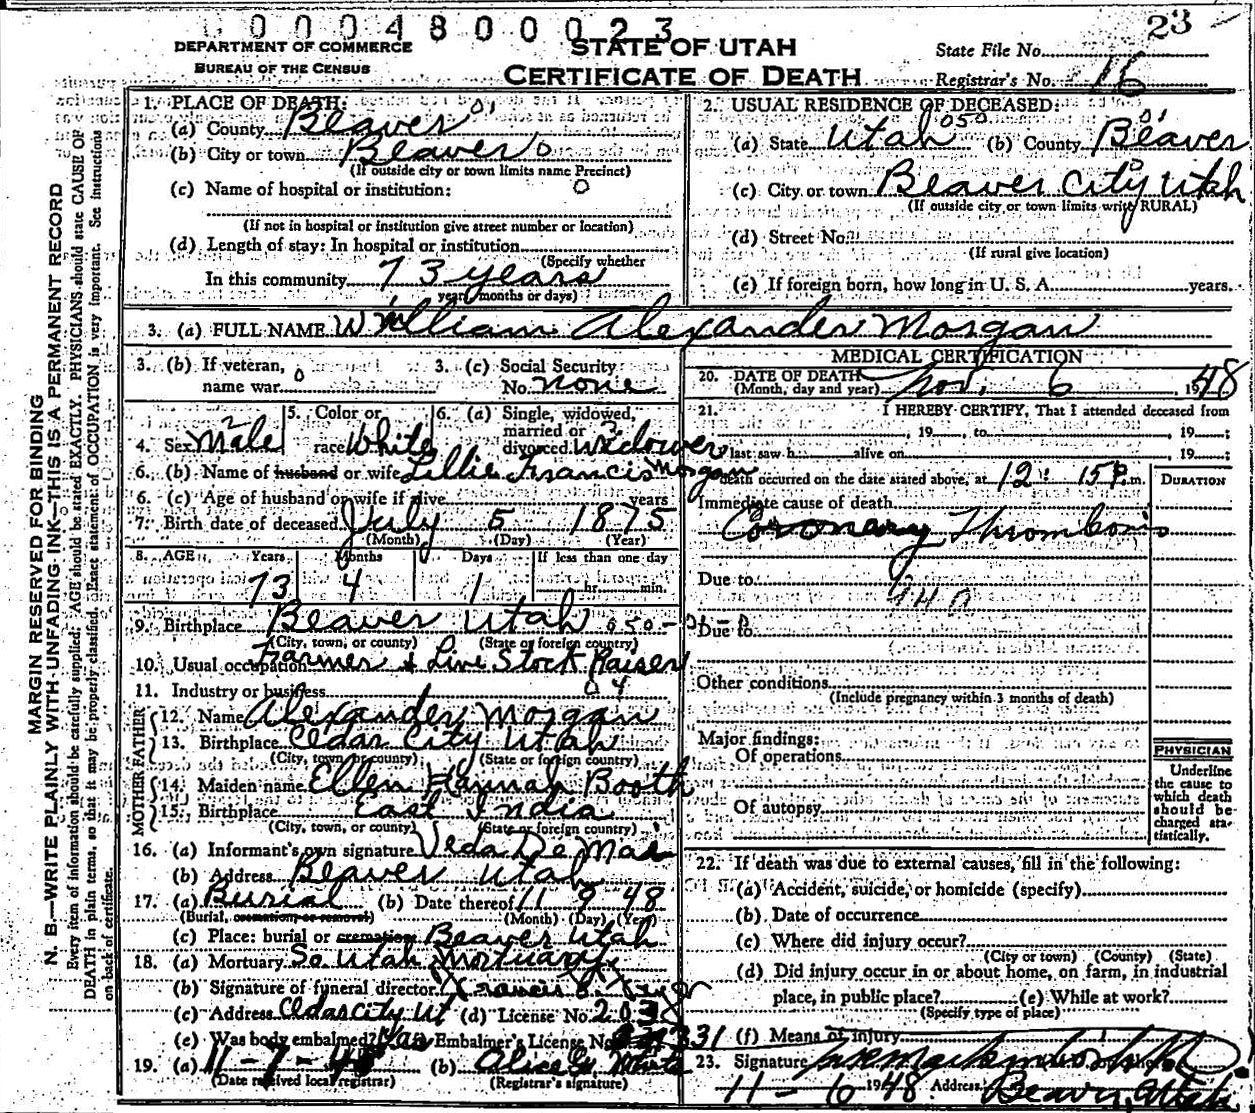 0 0 0 4 8 0 0 0 2 3
23
DEPARTMENT OF COMMERCE
BUREAU OF THE CENSUS
STATE OF UTAH
CERTIFICATE OF DEATH
State File No.
Registrar's No. 16
MARGIN RESERVED FOR BINDING
N. B.—WRITE PLAINLY WITH UNFADING INK—THIS IS A PERMANENT RECORD
Every item of information should be carefully supplied. AGE should be stated EXACTLY. PHYSICIANS should state CAUSE OF
DEATH in plain terms, so that it may be properly classified. Exact statement of OCCUPATION is very important. See instructions
on back of certificate.
1. PLACE OF DEATH:
(a) County Beaver 01
(b) City or town Beaver 0
(If outside city or town limits name Precinct)
(c) Name of hospital or institution: 0
(If not in hospital or institution give street number or location)
(d) Length of stay: In hospital or institution
(Specify whether
In this community 73 years
years, months or days)
2. USUAL RESIDENCE OF DECEASED:
(a) State Utah 050 (b) County Beaver 01
(c) City or town Beaver City Utah
(If outside city or town limits write RURAL)
(d) Street No.
(If rural give location)
(e) If foreign born, how long in U. S. A. years.
3. (a) FULL NAME William Alexander Morgan
3. (b) If veteran, 0
name war
3. (c) Social Security
No. none
4. Sex Male
5. Color or
race White
6. (a) Single, widowed,
married or
divorced Widower
6. (b) Name of husband or wife Lillie Francis Morgan
6. (c) Age of husband or wife if alive years
7. Birth date of deceased July 5 1875
(Month) (Day) (Year)
8. AGE Years Months Days If less than one day
73 4 1 hr. min.
9. Birthplace Beaver Utah 050
(City, town, or county) (State or foreign country)
10. Usual occupation Farmer & Live Stock Raiser
11. Industry or business 04
FATHER
12. Name Alexander Morgan
13. Birthplace Cedar City Utah
(City, town, or county) (State or foreign country)
MOTHER
14. Maiden name Ellen Hannah Booth
15. Birthplace East India
(City, town, or county) (State or foreign country)
16. (a) Informant's own signature Veda De Mar
(b) Address Beaver Utah
17. (a) Burial (b) Date thereof 11 9 48
(Burial, cremation or removal) (Month) (Day) (Year)
(c) Place: burial or cremation Beaver Utah
18. (a) Mortuary So. Utah Mortuary
(b) Signature of funeral director Francis
(c) Address Cedar City Ut (d) License No. 203
(e) Was body embalmed? Yes Embalmer's License No. 331
19. (a) 11-7-48 (b) Alice G. White
(Date received local registrar) (Registrar's signature)
MEDICAL CERTIFICATION
20. DATE OF DEATH
(Month, day and year) Nov. 6 1948
21. I HEREBY CERTIFY, That I attended deceased from
, 19 , to , 19 ;
last saw h alive on , 19 ;
death occurred on the date stated above, at 12:15 P. m.
DURATION
Immediate cause of death
Coronary Thrombosis
Due to
94 a
Due to
Other conditions
(Include pregnancy within 3 months of death)
Major findings:
Of operations
Of autopsy
PHYSICIAN
Underline
the cause to
which death
should be
charged sta-
tistically.
22. If death was due to external causes, fill in the following:
(a) Accident, suicide, or homicide (specify)
(b) Date of occurrence
(c) Where did injury occur?
(City or town) (County) (State)
(d) Did injury occur in or about home, on farm, in industrial
place, in public place? (e) While at work?
(Specify type of place)
(f) Means of injury
23. Signature
11-6 1948 Address Beaver, Utah